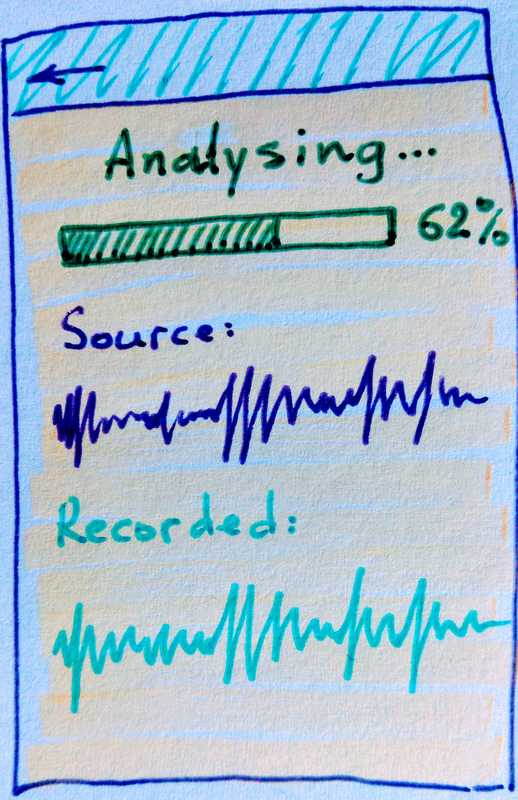 Analysing...
62%
Source:
Recorded: